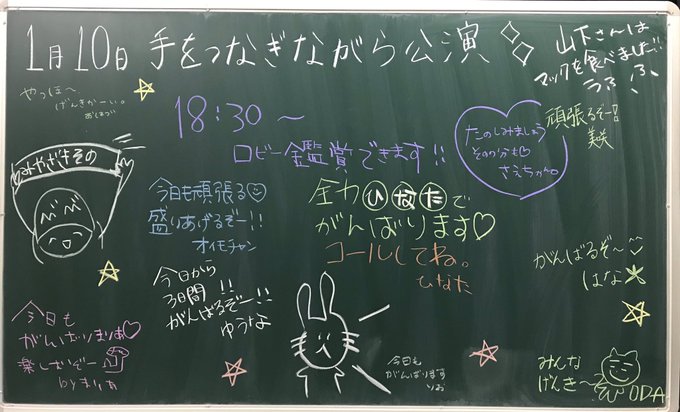 1月10日 手をつなぎながら公演
山下さんは
マックを食べました!!
うふふふ
やっほ〜
げんきかーい。
18:30〜
ロビー鑑賞できます!!
たのしみましょう
その分も♡
さえちゃん
頑張るぞー!
美咲
みやざきその
今日も頑張る
盛りあげるぞー!!
オイモチャン
全力ひなたで
がんばります♡
コールしてね。
ひなた
今日から
3日間!!
がんばるぞー!!
ゆうな
がんばるぞ〜
はな
今日も
がんばりまりあ♡
楽しむぞー
byまりあ
今日も
がんばります
りお
みんな
げんき〜
ODA